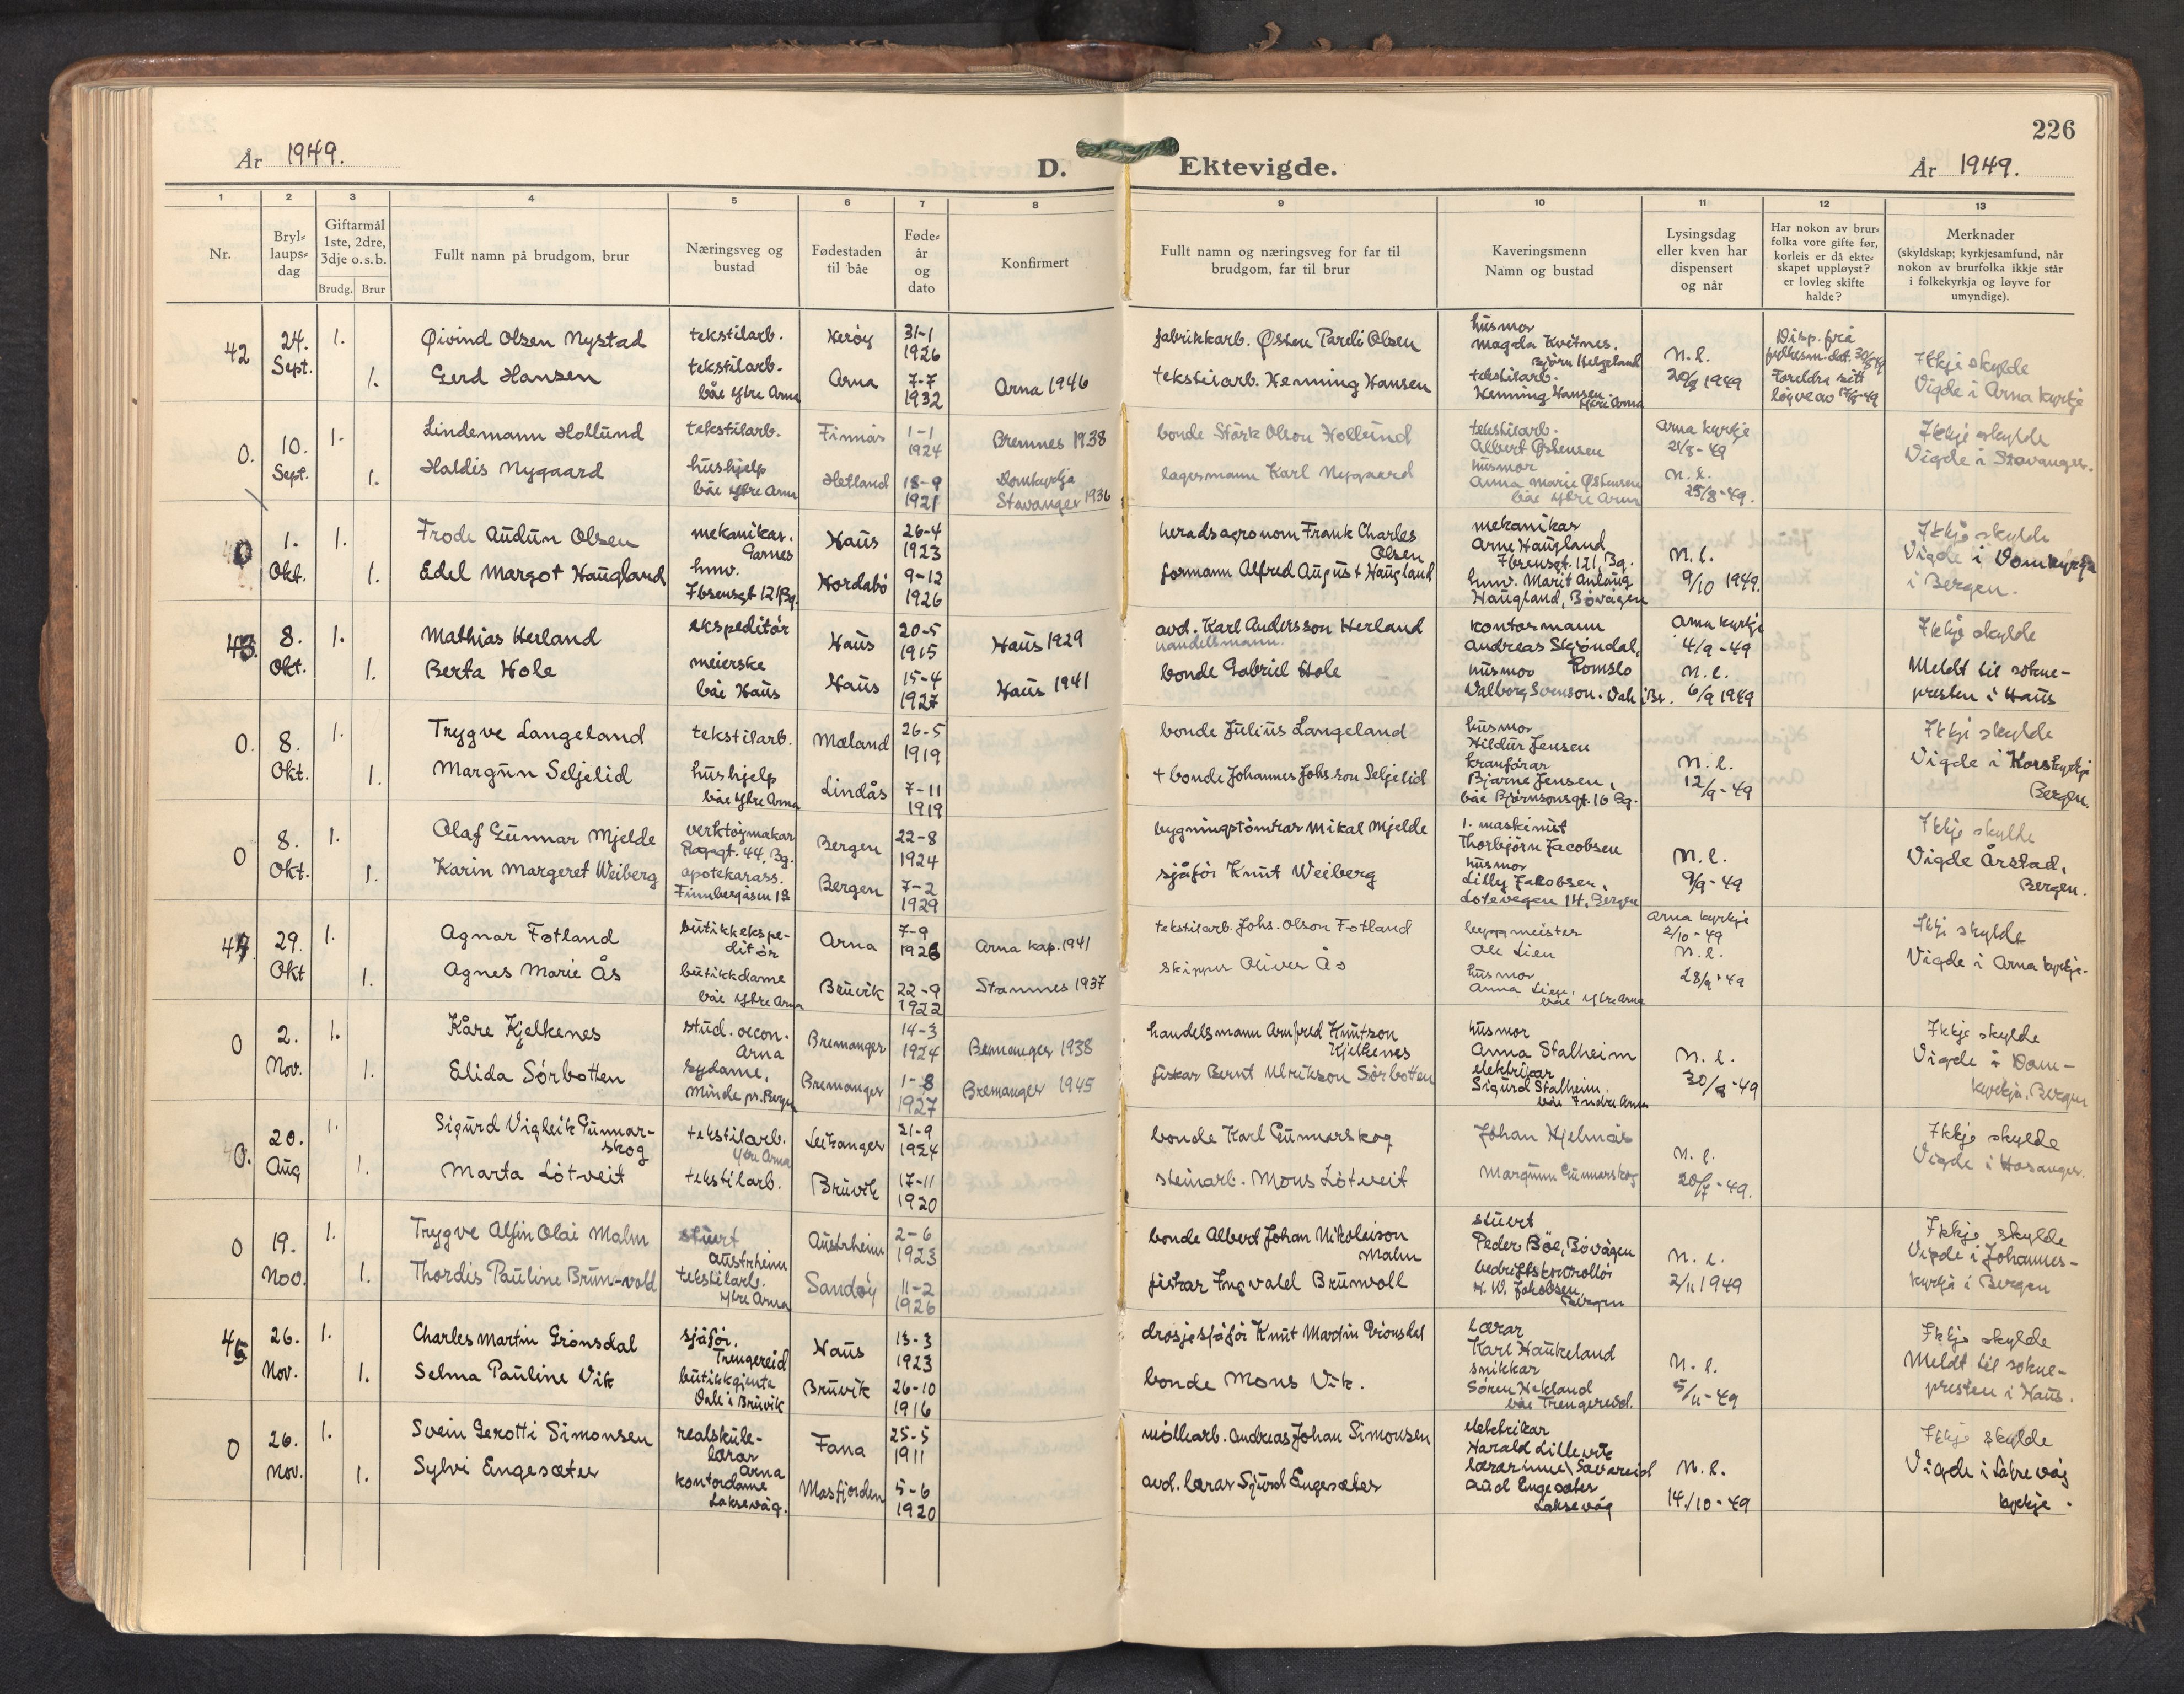 226
År 1949.
D.
Ektevigde.
År 1949.
1 2 3 4 5 6 7 8 9 10 11 12 13
Nr.
Bryl-
laups-
dag
Giftarmål
1ste, 2dre,
3dje o.s.b.
Brudg. Brur
Fullt namn på brudgom, brur
Næringsveg og
bustad
Fødestaden
til båe
Føde-
år
og
dato
Konfirmert
Fullt namn og næringsveg for far til
brudgom, far til brur
Kaveringsmenn
Namn og bustad
Lysingsdag
eller kven har
dispensert
og når
Har nokon av brur-
folka vore gifte før,
korleis er då ekte-
skapet uppløyst?
er lovleg skifte
halde?
Merknader
(skyldskap; kyrkjesamfund, når
nokon av brurfolka ikkje står
i folkekyrkja og løyve for
umyndige).
42
24.
Sept.
1.
1.
Øivind Olsen Nystad
Gerd Hansen
tekstilarb.
tekstilarb.
båe Ytre Arna
Herøy
Arna
31-1
1926
7-7
1932
Arna 1946
fabrikkarb. Olsen
tekstilarb. Henning Hansen
husmor
Magda Kvitnes.
Bjørn Helgeland
tekstilarb.
Henning Hansen.
Ytre Arna
n. l.
20/8 1949
Disp. frå
fylkesm. dat.
Foreldra sitt
løyve av
Ikkje skylde
Vigde i Arna kyrkje
0.
10.
Sept.
1.
1.
Lindemann Hollund
Haldis Nygaard
tekstilarb.
hushjelp
båe Ytre Arna
Finnås
Hetland
1-1
1924
18-9
1921
Bremnes 1938
Domkyrkja
Stavanger 1936
bonde Sterk Olson Hollund
lagermann Karl Nygaard
tekstilarb.
Albert Østensen
husmor
Anna Marie Østensen
båe Ytre Arna
Arna kyrkje
21/8-49
n. l.
25/8-49.
Ikkje skylde
Vigde i Stavanger.
0
1.
Okt.
1.
1.
Frode Audun Olsen
Edel Margot Haugland
mekanikar.
Garnes
hmv.
Ibsensgt 121, Bg.
Haus
Hordabø
26-4
1923
9-12
1926
heradsagronom Frank Charles
Olsen
formann Alfred August Haugland
mekanikar
Arne Haugland
Ibsensgt. 121, Bg.
hmv. Marit Anlaug
Haugland, Bøvågen
n. l.
9/10 1949.
Ikkje skylde
Vigde i Domkyrkja
i Bergen.
43.
8.
Okt.
1.
1.
Mathias Herland
Berta Hole
ekspeditør
meierske
båe Haus
Haus
Haus
20-5
1915
15-4
1927
Haus 1929
Haus 1941
avd. Karl Andersson Herland
handelsmann.
bonde Gabriel Hole
kontormann
Andreas Skjøndal,
husmor Romslo
Valborg Svenson. Vah i Br.
Arna kyrkje
4/9-49
n. l.
6/9 1949
Ikkje skylde
Meldt til sokne-
presten i Haus
0.
8.
Okt.
1.
1.
Trygve Langeland
Margun Seljelid
tekstilarb.
hushjelp
båe Ytre Arna
Mæland
Lindås
26-5
1919
7-11
1919
bonde Julius Langeland
+ bonde Johannes Johs.son Seljelid
husmor
Hildur Jensen
kranførar
Bjarne Jensen,
båe Bjørnsonsgt. 16 Bg.
n. l.
12/9-49
Ikkje skylde
Vigde i Korskyrkja
Bergen.
0
8.
Okt.
1.
1.
Olaf Gunnar Mjelde
Karin Margeret Weiberg
verktøymakar
44, Bg.
apotekarass.
Finnbergåsen 12
Bergen
Bergen
22-8
1924
7-2
1929
bygningstømrar Mikal Mjelde
sjåfør Knut Weiberg
1. maskinist
Thorbjørn Jacobsen
husmor
Lilly Jakobsen,
Løtevegen 14, Bergen
n. l.
9/9-49
Ikkje skylde
Vigde Årstad,
Bergen.
44.
29.
Okt
1.
1.
Agnar Fotland
Agnes Marie Ås
butikkekspe-
ditør
butikkdame
båe Ytre Arna
Arna
Bruvik
7-9
1926
22-9
1922
Arna kap. 1941
Stamnes 1937
tekstilarb. Johs. Olson Fotland
skipper Oliver Ås
byggmeister
Ole Lien
husmor
Anna Lien.
båe Ytre Arna
Arna kyrkje
2/10-49
n. l.
28/9-49
Ikkje skylde
Vigde i Arna kyrkje.
0
2.
Nov.
1.
1.
Kåre Kjelkenes
Elida Sørbotten
stud. oecon.
Arna
sydame,
Minde pr. Bergen
Bremanger
Bremanger
14-3
1924
1-8
1927
Bremanger 1938
Bremanger 1945
handelsmann Arnfred Knutson
Kjelkenes
fiskar Bernt Ulrikson Sørbotten
husmor
Anna Stalheim
elektrikar
Sigurd Stalheim.
båe Indre Arna
n. l.
30/8-49
Ikkje skylde
Vigde i Dom-
kyrkja, Bergen
0.
20.
Aug
1.
1.
Sigurd Vigleik Gunnar-
skog
Marta Løtveit
tekstilarb.
Ytre Arna
tekstilarb.
Leikanger
Bruvik
21-9
1924
17-11
1920
bonde Karl Gunnarskog
steinarb. Mons Løtveit
Johan Hjelmås
Margunn Gunnarskog
n. l.
20/7-49.
Ikkje skylde
Vigde i Hosanger.
0
19.
Nov.
1.
1.
Trygve Alfin Olai Malm
Thordis Pauline Brun-vold
stuert
Austrheim
tekstilarb.
Ytre Arna
Austrheim
Sandøy
2-6
1923
11-2
1926
bonde Albert Johan Nikolaison
Malm
fiskar Ingvald Brunvoll
stuert
Peder Bøe, Bøvågen
bedriftskontrollør
H. W. Jakobsen,
Bergen
n. l.
2/11 1949
Ikkje skylde
Vigde i Johannes-
kyrkja i Bergen
45
26.
Nov.
1.
1.
Charles Martin Grønsdal
Selma Pauline Vik
sjåfør.
Trengereid
butikkgjente
Dale i Bruvik
Haus
Bruvik
13-3
1923
26-10
1916
drosjesjåfør Knut Martin Grønsdal
bonde Mons Vik.
lærar
Karl Haukeland
snikkar
Søren Hekland
båe Trengereid.
n. l.
5/11-49
Ikkje skylde
Meldt til sokne-
presten i Haus.
0
26.
Nov.
1.
1.
Svein Gerotti Simonsen
Sylvi Engesæter
realskule-
lærar
Arna
kontordame
Laksevåg.
Fana
Masfjorden
25-5
1911
5-6
1920
møllearb. Andreas Johan Simonsen
avd. lærar Sjurd Engesæter
elektrikar
Harald Lillevik
lærarinne Sævareid
Aud Engesæter
Laksevåg
n. l.
14/10-49
Ikkje skylde
Vigde i Laksevåg
kyrkje.